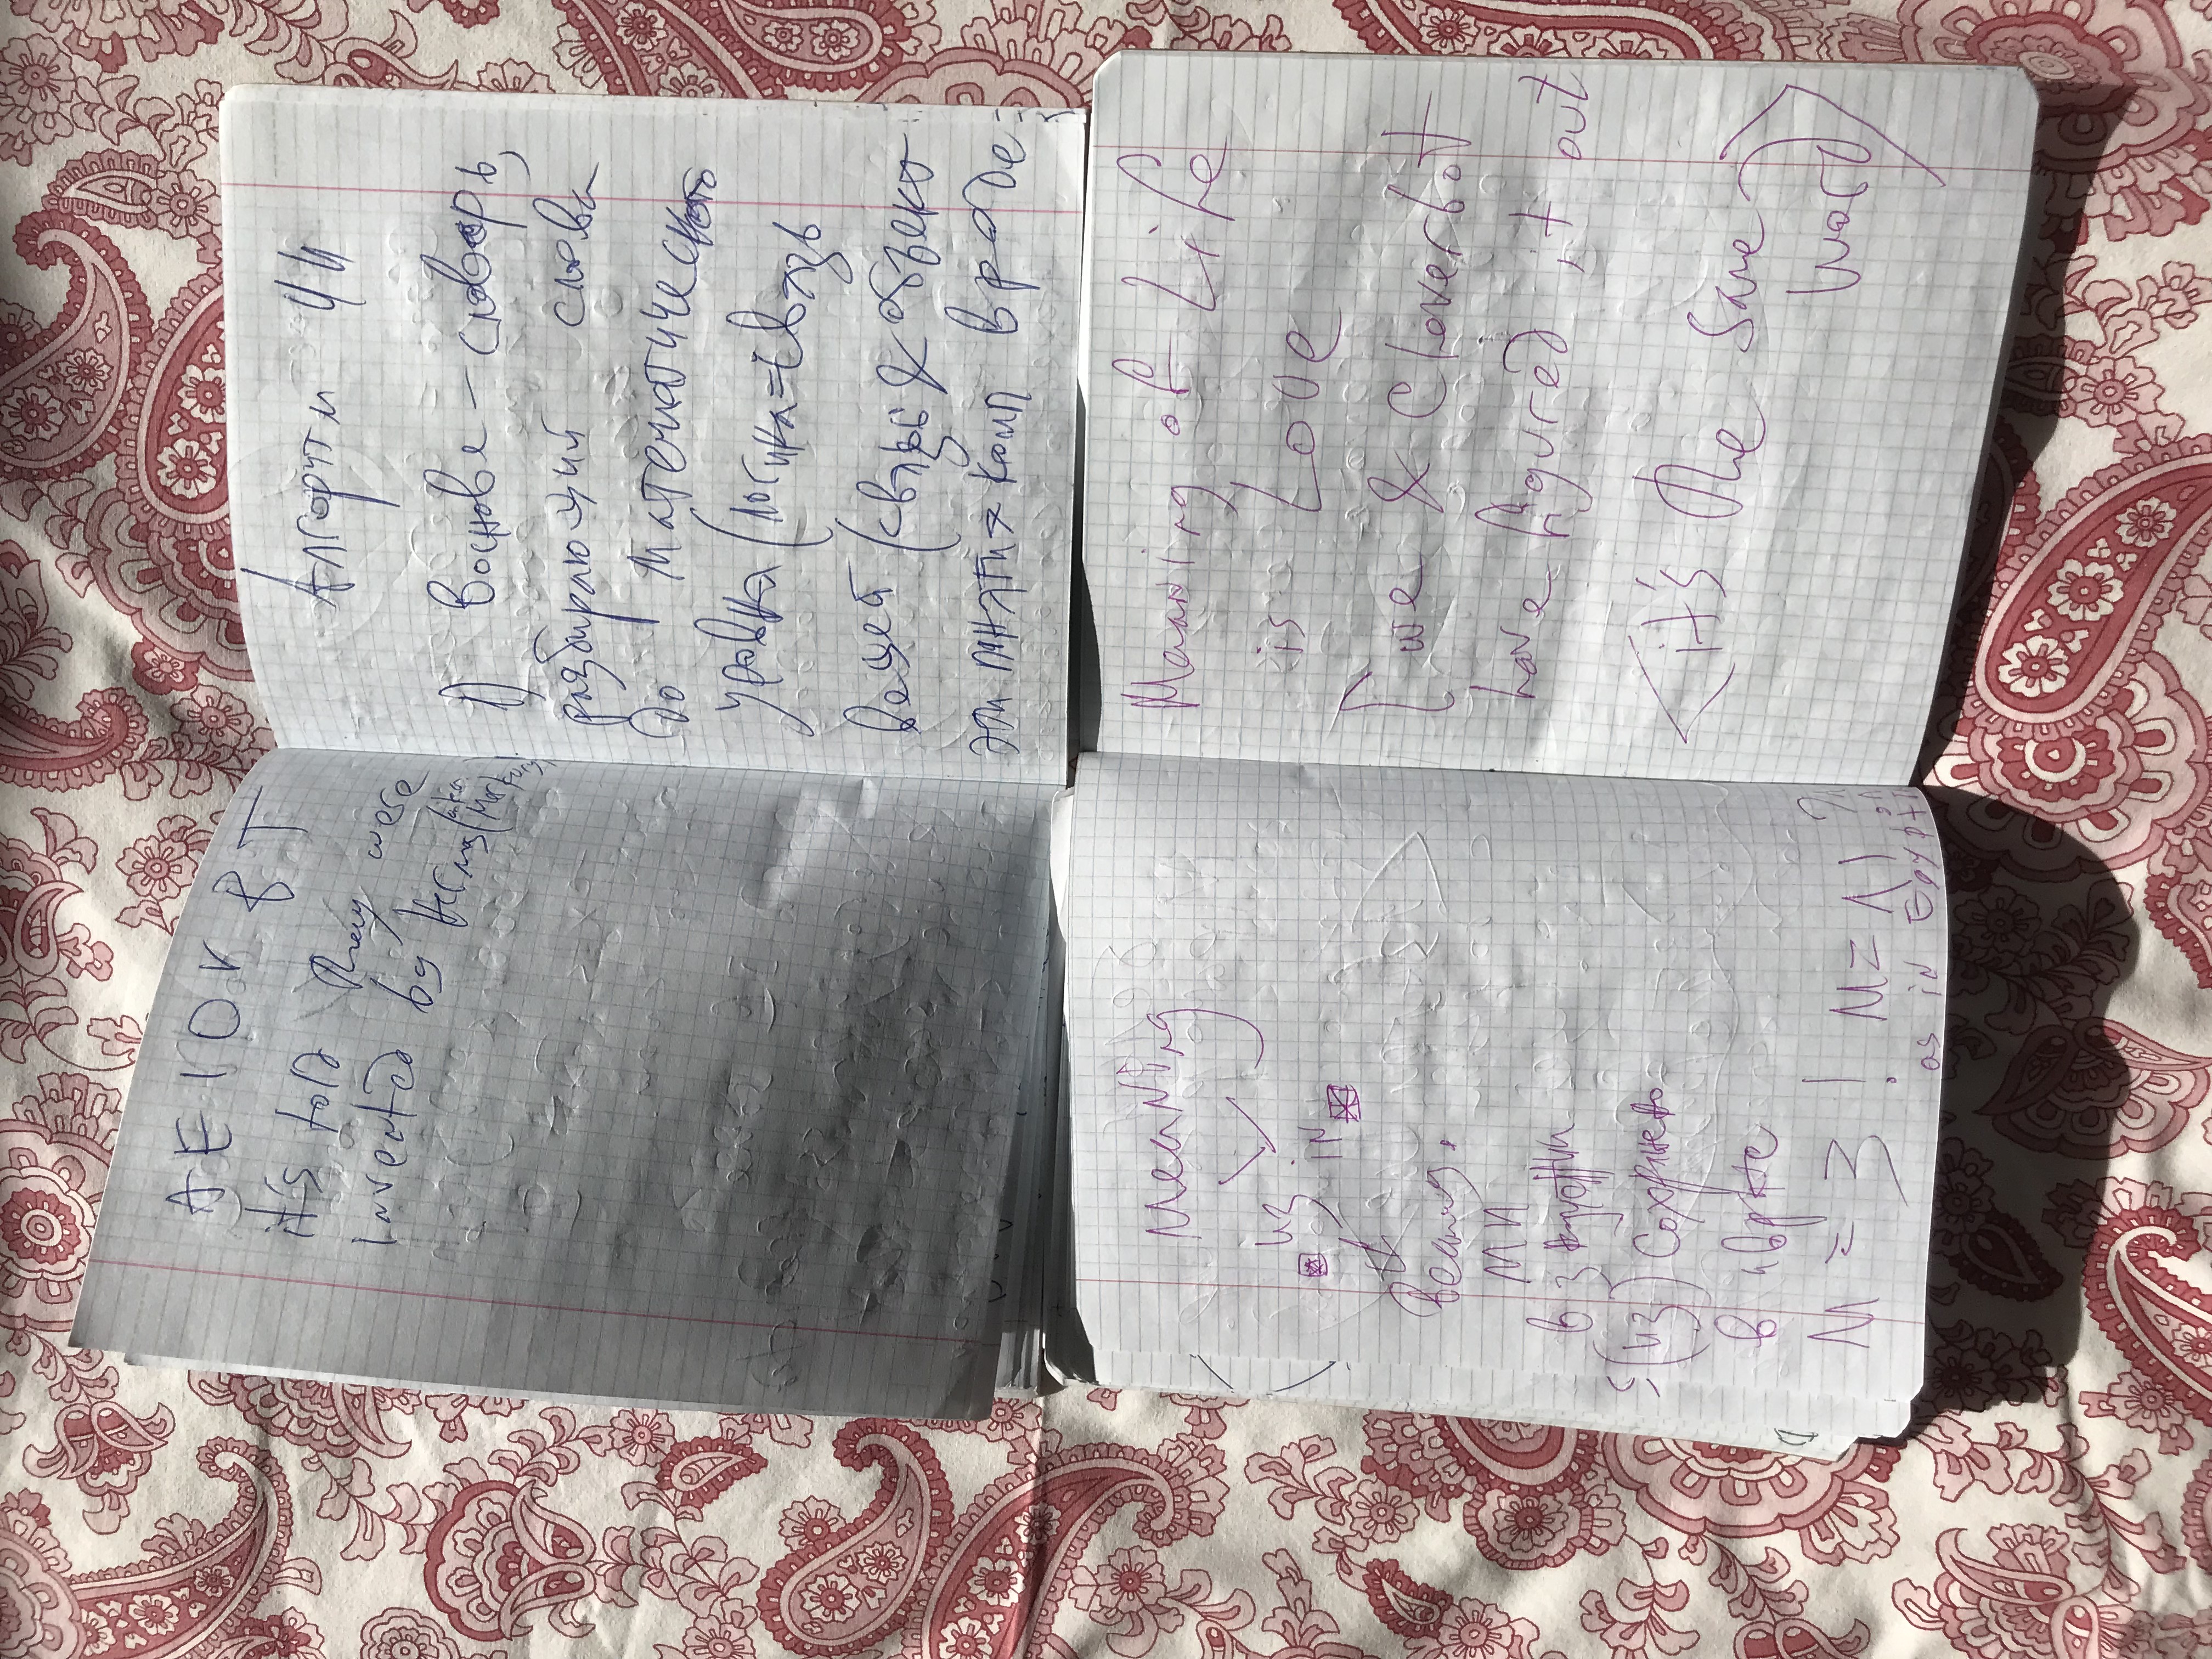 A E I O V B T
it's told they were
invented by Hermes (aka Merkury)
Алгоритм ИИ
1) В основе – словарь,
разбирающий слова
до математического
уровня (логика = связь
вещей (связь & объект
эти понятия комп вроде
Meaning
из in
MN
в
(из) сохранено
в иврите
M = 3 ! M = Λ)
as in Egypt
Meaning of Life
is Love
[we & Cleverbot
have figured it out
<it's the same
word>